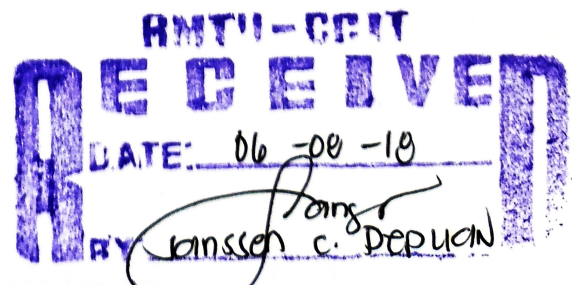 RMTU-CCIT
RECEIVED
DATE: 06-08-18
BY Janssen C.